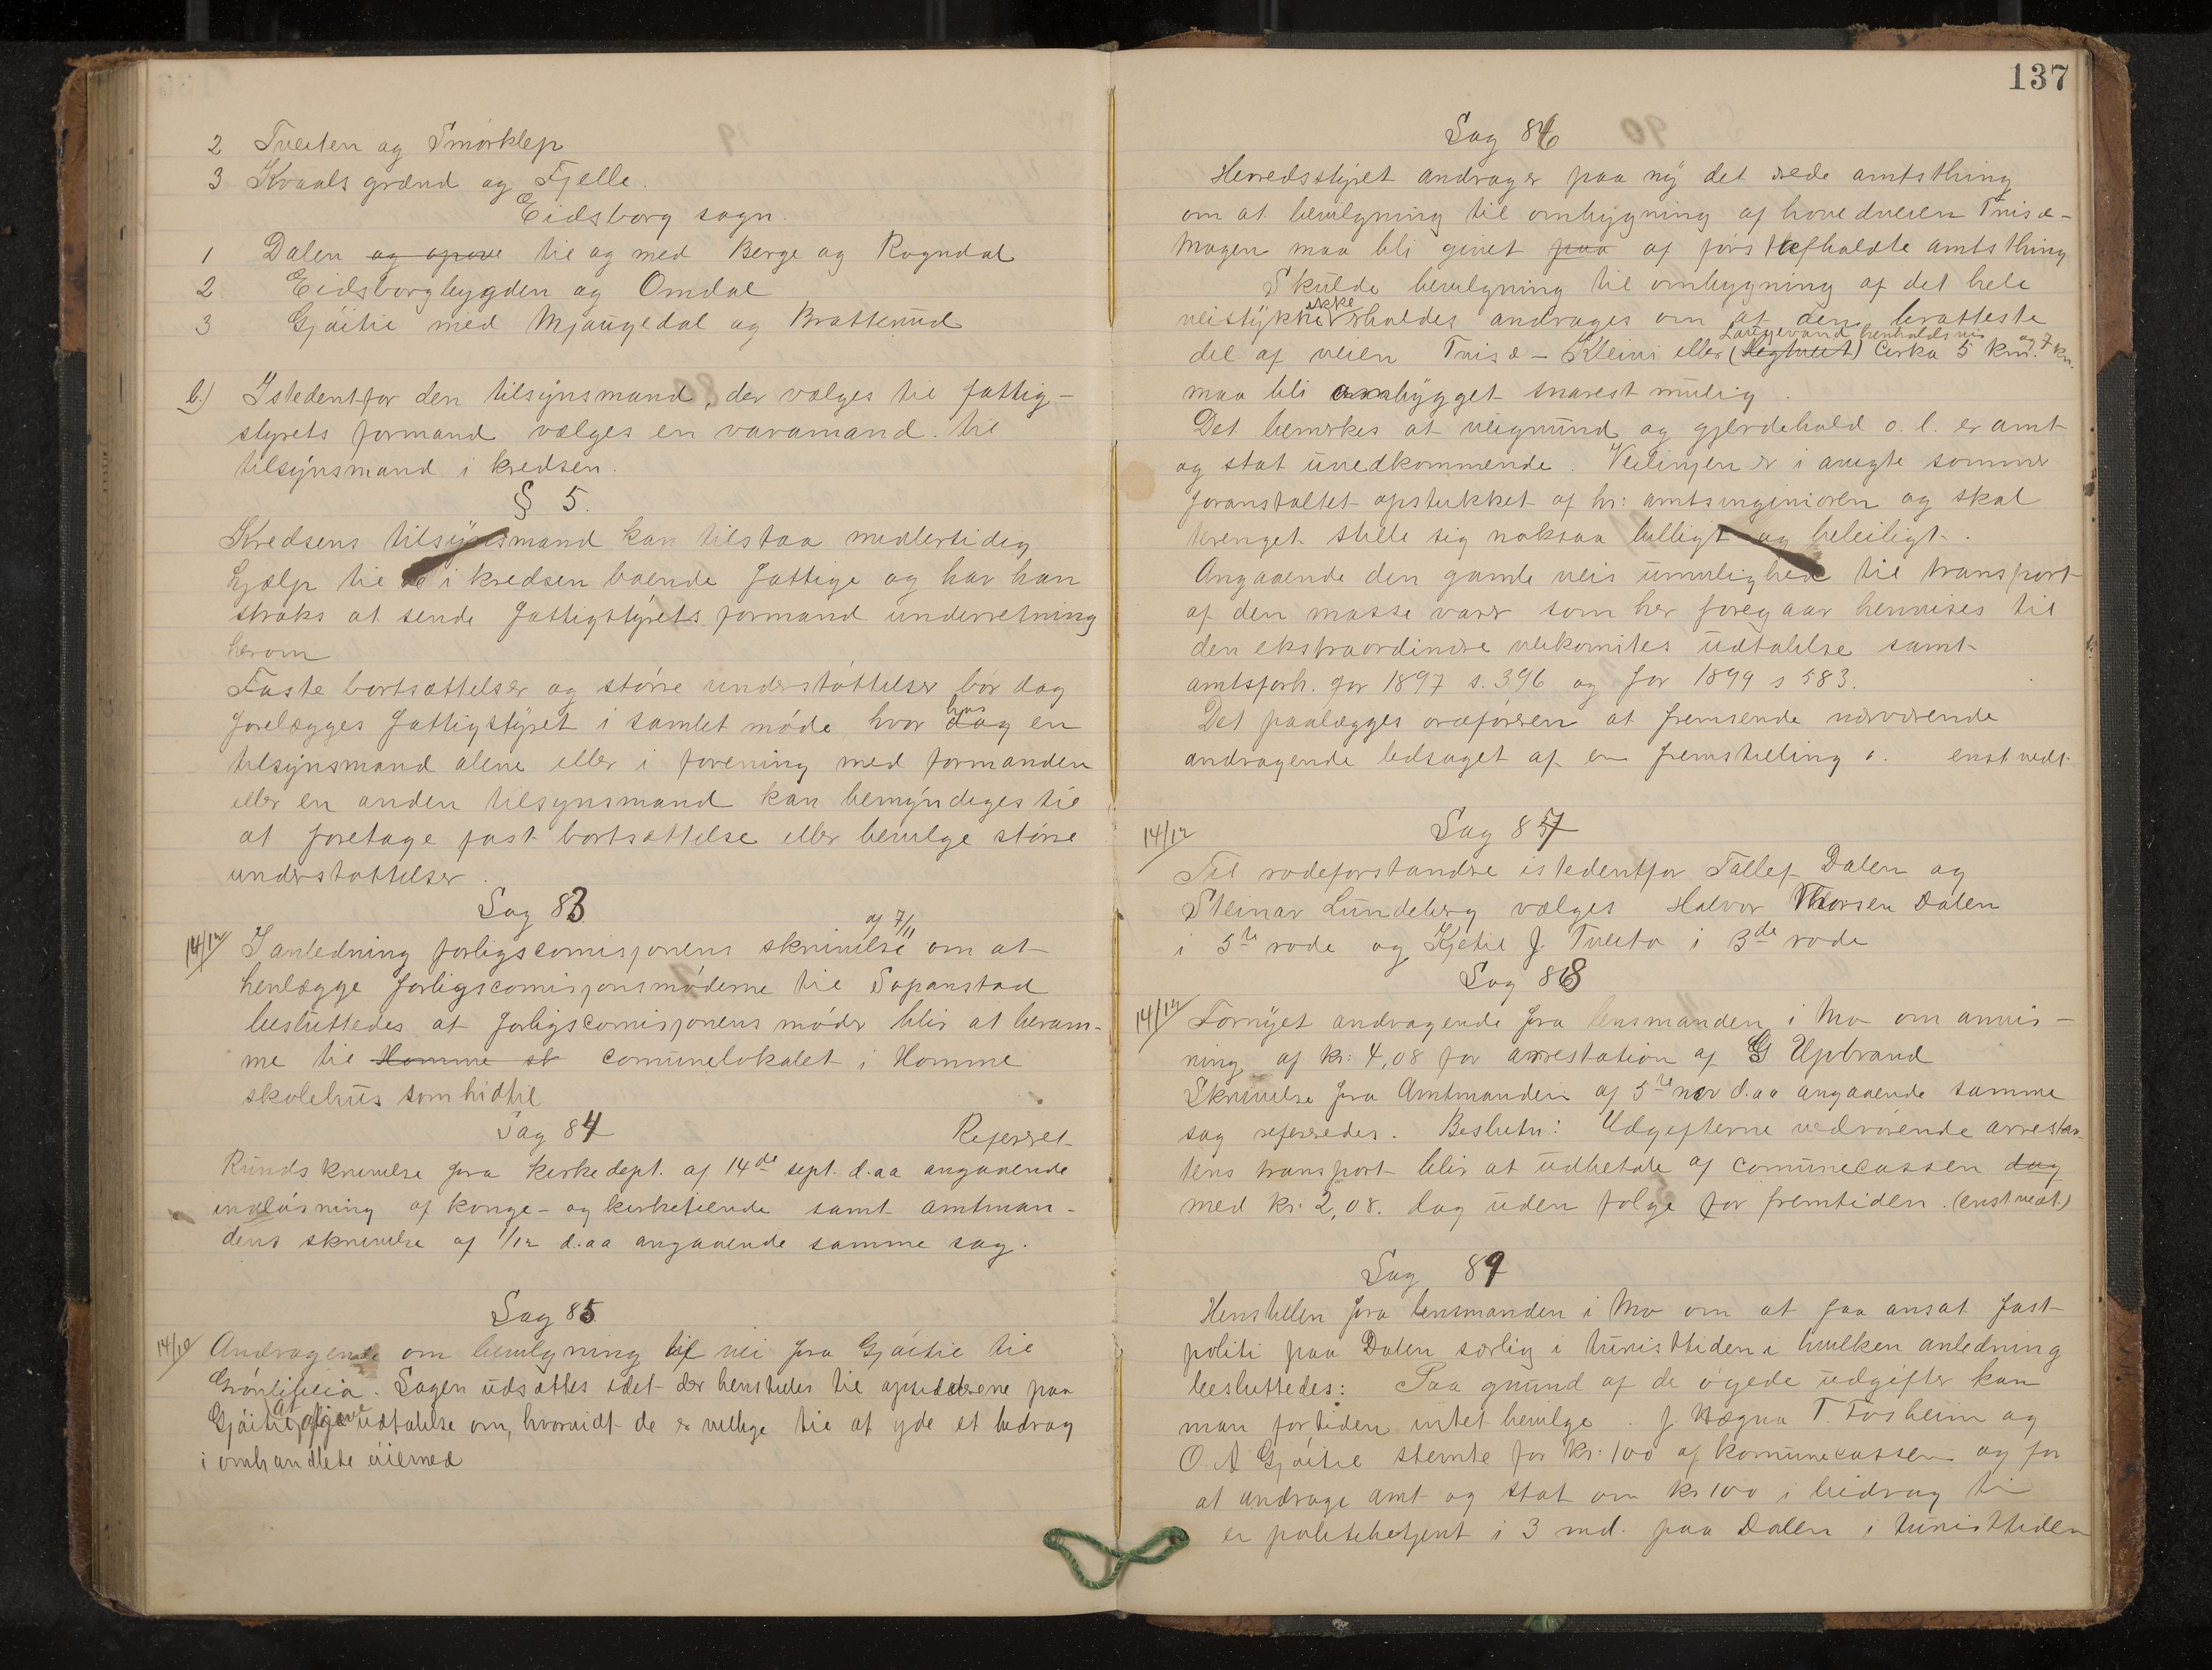 2 Tveiten og Smörklep
3 Kvaalsgrænd og Fjelle.
Eidsborg sogn.
1 Dalen og opove til og med Berge og Rogndal
2 Eidsborgbygden og Omdal
3 Gjöitil med Mjaugedal og Brattenud
b.) Istedentfor den tilsynsmand, der vælges til fattig-
styrets formand vælges en varamand til
tilsynsmand i kredsen.
§ 5.
Kredsens tilsynsmand kan tilstaa midlertidig
hjælp til de i kredsen boende fattige og har han
straks at sende fattigstyrets formand underretning
herom
Faste bortsættelser og större understöttelser bör dog
forelægges fattigstyret i samlet möde, hvor hos dog en
tilsynsmand alene eller i forening med formanden
eller en anden tilsynsmand kan bemyndiges til
at foretage fast bortsættelse eller bevilge större
understöttelser.
Sag 83
14/12 I anledning forligscomisjonens skrivelse af 7/11 om at
henlægge forligscomisjonsmöderne til Sopanstad
besluttedes at forligscomisjonens möder blir at beram-
me til Homme sk comunelokalet i Homme
skolehus som hidtil
Sag 84 Referert
Rundskrivelse fra kirkedept. af 14de sept. d.aa angaaende
indlösning af konge- og kirketiende samt amtman-
dens skrivelse af 1/12 d.aa angaaende samme sag.
Sag 85
14/12 Andragende om bevilgning til vei fra Gjöitil til
Grönlifleia. Sagen udsættes idet der henstilles til opsidderene paa
Gjöitil at afgive udtalelse om, hvorvidt de er villige til at yde et bidrag
i omhandlede öiemed
137
Sag 86
Herredsstyret andrager paa ny det ærede amtsthing
om at bevilgning til ombygning af hovedveien Tvisæ-
Mogen maa bli givet paa af först afholdte amtsthing
Skulde bevilgning til ombygning af det hele
veistykke ikke erholdes andrages om at den bratteste
del af veien Tvisæ - Kleivi eller (Høgtveit) Laugevand henholdsvis Cirka 5 km. og 7 km.
maa bli ombygget snarest mulig.
Det bemerkes at veigrund og gjerdehold o. l. er amt
og stat uvedkommende. Veilinjen er i avigte sommer
foranstaltet opstukket af hr: amtsingeniören og skal
terenget stille sig noksaa billigt og beleiligt.
Angaaende den gamle veis umulighed til transport
af den masse varer som her foregaar henvises til
den ekstraordinære veikomites udtalelse samt
amtsforh. for 1897 s. 396 og for 1899 s 583.
Det paalægges ordföreren at fremsende nærværende
andragende ledsaget af en fremstilling. enst vedt.
14/12 Sag 87
Til rodeforstandre istedentfor Tallef Dalen og
Steinar Lundeberg vælges Halvor Thorsen Dalen
i 5te rode og Kjetil J. Tveito i 3de rode
Sag 88
14/12 Fornyet andragende fra lensmanden i Mo om anvis-
ning af kr: 4,08 for arrestation af G Upbrand
Skrivelse fra Amtmanden af 5te nov d.aa angaaende samme
sag refereredes. Beslutn: Udgifterne vedrörende arrestan-
tens transport blir at udbetale af comunecassen dog
med kr. 2,08. dog uden fölge for fremtiden. (enst vedt)
Sag 89
Henstillen fra lensmanden i Mo om at faa ansat fast
politi paa Dalen særlig i turisttiden i hvilken anledning
besluttedes: Paa grund af de ögede udgifter kan
man fortiden intet bevilge. J. Hægna T. Fosheim og
O. A Gjöitil stemte for kr: 100 af komunecassen og for
at andrage amt og stat om kr 100 i bidrag til
en politibetjent i 3 md. paa Dalen i turisttiden